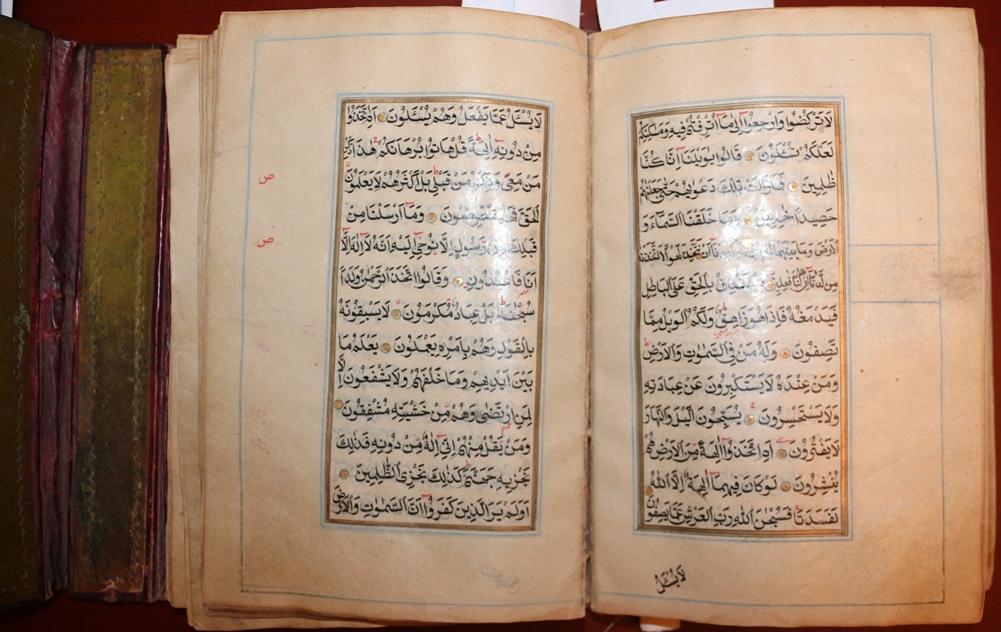 لَا تَرْكُضُوا وَارْجِعُوا إِلَىٰ مَا أُتْرِفْتُمْ فِيهِ وَمَسٰكِنِكُمْ
لَعَلَّكُمْ تُسْـَٔلُونَ قَالُوا يٰوَيْلَنَا إِنَّا كُنَّا
ظٰلِمِينَ فَمَا زَالَتْ تِلْكَ دَعْوٰىهُمْ حَتّٰى جَعَلْنٰهُمْ
حَصِيدًا خٰمِدِينَ وَمَا خَلَقْنَا السَّمَاءَ وَ
الْاَرْضَ وَمَا بَيْنَهُمَا لَوْ اَرَدْنَا اَنْ نَتَّخِذَ لَهْوًا لَاتَّخَذْنٰهُ
مِنْ لَدُنَّا اِنْ كُنَّا فٰعِلِينَ بَلْ نَقْذِفُ بِالْحَقِّ عَلَى الْبَاطِلِ
فَيَدْمَغُهُ فَاِذَا هُوَ زَاهِقٌ وَلَكُمُ الْوَيْلُ مِمَّا
تَصِفُونَ وَلَهُ مَنْ فِي السَّمٰوٰتِ وَالْاَرْضِ
وَمَنْ عِنْدَهُ لَا يَسْتَكْبِرُونَ عَنْ عِبَادَتِهِ
وَلَا يَسْتَحْسِرُونَ يُسَبِّحُونَ الَّيْلَ وَالنَّهَارَ
لَا يَفْتُرُونَ اَمِ اتَّخَذُوا اٰلِهَةً مِنَ الْاَرْضِ هُمْ
يُنْشِرُونَ لَوْ كَانَ فِيهِمَا اٰلِهَةٌ اِلَّا اللّٰهُ
لَفَسَدَتَا فَسُبْحٰنَ اللّٰهِ رَبِّ الْعَرْشِ عَمَّا يَصِفُونَ
لَا يُسْـَٔلُ
لَا يُسْـَٔلُ عَمَّا يَفْعَلُ وَهُمْ يُسْـَٔلُونَ اَمِ اتَّخَذُوا
مِنْ دُونِهِ اٰلِهَةً قُلْ هَاتُوا بُرْهَانَكُمْ هٰذَا ذِكْرُ
مَنْ مَعِيَ وَذِكْرُ مَنْ قَبْلِي بَلْ اَكْثَرُهُمْ لَا يَعْلَمُونَ
الْحَقَّ فَهُمْ مُعْرِضُونَ وَمَا اَرْسَلْنَا مِنْ
قَبْلِكَ مِنْ رَسُولٍ اِلَّا نُوحِي اِلَيْهِ اَنَّهُ لَا اِلٰهَ اِلَّا
اَنَا فَاعْبُدُونِ وَقَالُوا اتَّخَذَ الرَّحْمٰنُ وَلَدًا
سُبْحٰنَهُ بَلْ عِبَادٌ مُكْرَمُونَ لَا يَسْبِقُونَهُ
بِالْقَوْلِ وَهُمْ بِاَمْرِهِ يَعْمَلُونَ يَعْلَمُ مَا
بَيْنَ اَيْدِيهِمْ وَمَا خَلْفَهُمْ وَلَا يَشْفَعُونَ اِلَّا
لِمَنِ ارْتَضٰى وَهُمْ مِنْ خَشْيَتِهِ مُشْفِقُونَ
وَمَنْ يَقُلْ مِنْهُمْ اِنِّي اِلٰهٌ مِنْ دُونِهِ فَذٰلِكَ
نَجْزِيهِ جَهَنَّمَ كَذٰلِكَ نَجْزِي الظّٰلِمِينَ
اَوَلَمْ يَرَ الَّذِينَ كَفَرُوا اَنَّ السَّمٰوٰتِ وَالْاَرْضَ
ص
ص